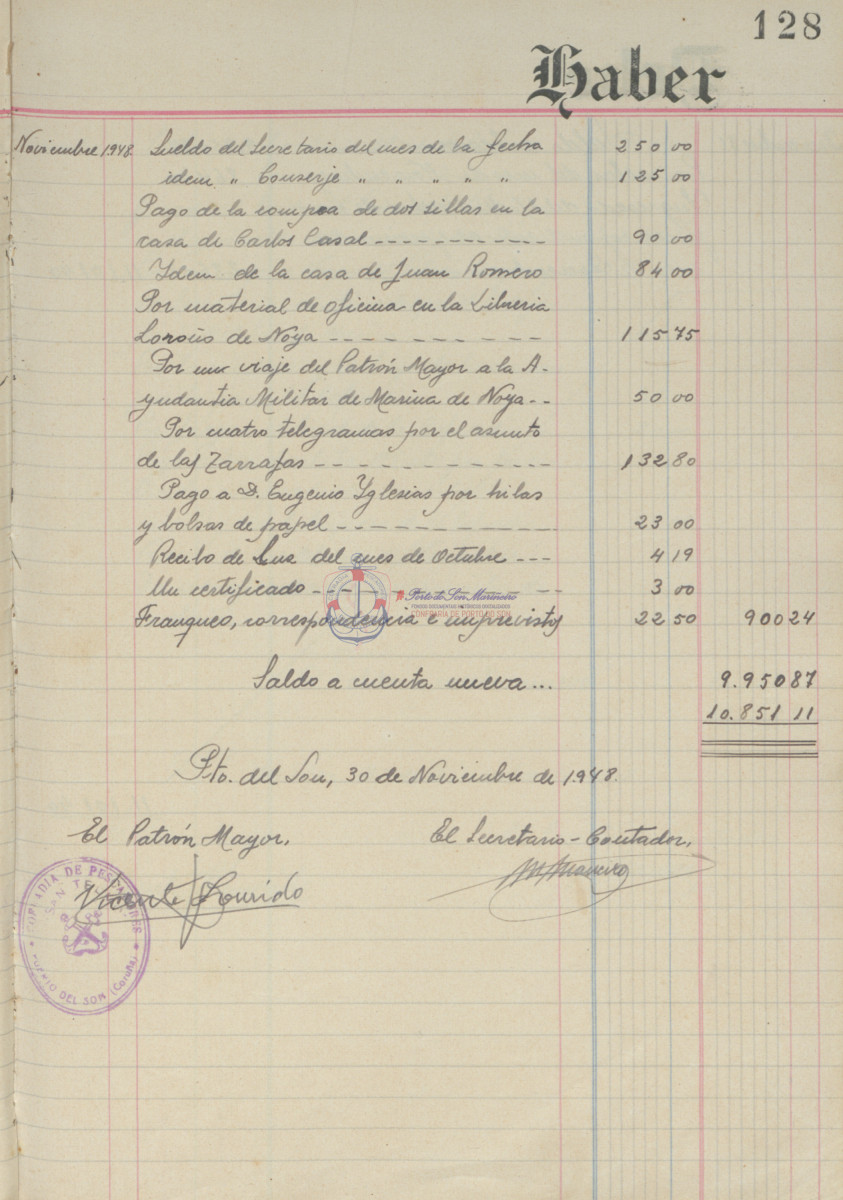 128
Haber
Noviembre 1948 Sueldo del Secretario del mes de la fecha 250 00
idem " Conserje " " " " " 125 00
Pago de la compra de dos sillas en la
casa de Carlos Casal ----------- 90 00
Ydem de la casa de Juan Romero 84 00
Por material de oficina en la Libreria
de Noya --------- 115 75
Por un viaje del Patrón Mayor a la A-
yudantia Militar de Marina de Noya -- 50 00
Por cuatro telegramas por el asunto
de las Zarrafas ------------- 132 80
Pago a D. Eugenio Yglesias por hilas
y bolsas de papel ------------- 23 00
Recibo de Luz del mes de Octubre --- 4 19
Un certificado ------------- 3 00
Franqueo, correspondencia e imprevistos 22 50 900 24
Porto do Son Mariñeiro
FONDOS DOCUMENTAIS HISTÓRICOS DIXITALIZADOS
CONFRARÍA DE PORTO DO SON
Saldo a cuenta nueva... 9.950 87
10.851 11
Pto. del Son, 30 de Noviembre de 1948.
El Patrón Mayor, El Secretario-Contador,
Vicente Lourido
COFRADIA DE PESCADORES
SAN TELMO
PUERTO DEL SON (Coruña)